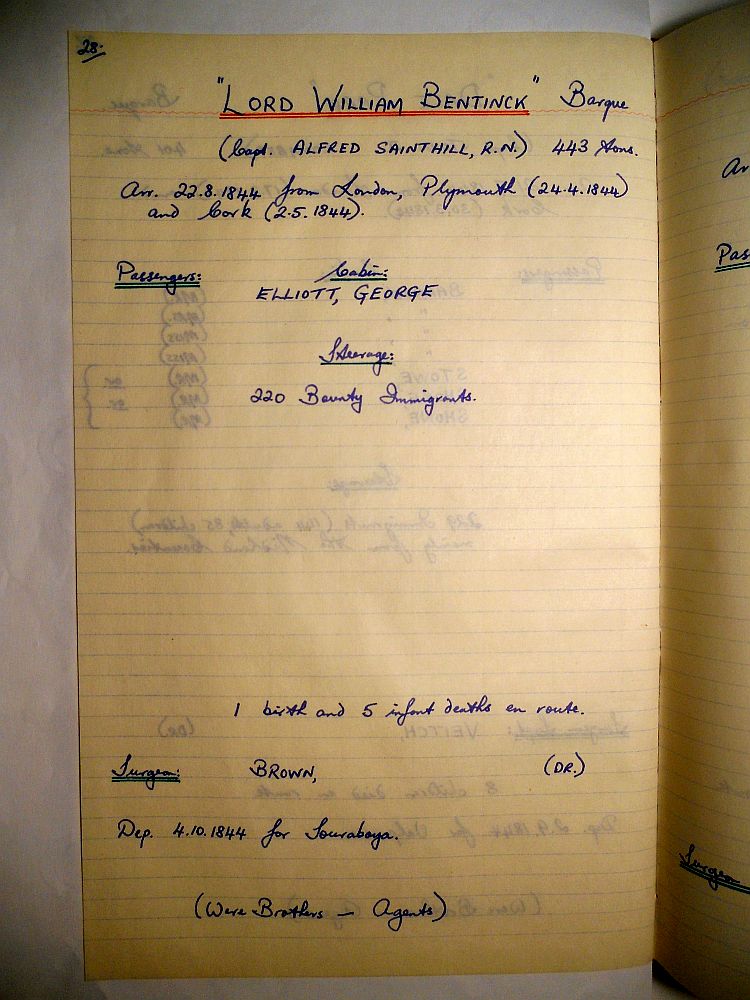 28.
"LORD WILLIAM BENTINCK" Barque
(Capt. ALFRED SAINTHILL, R.N.) 443 tons.
Arr. 22.8.1844 from London, Plymouth (24.4.1844)
and Cork (2.5.1844).
Passengers: Cabin:
ELLIOTT, GEORGE
Steerage:
220 Bounty Immigrants.
1 birth and 5 infant deaths en route.
Surgeon: BROWN, (DR.)
Dep. 4.10.1844 for Sourabaya.
(Were Brothers — Agents)
Arr
Pas
Surgeon